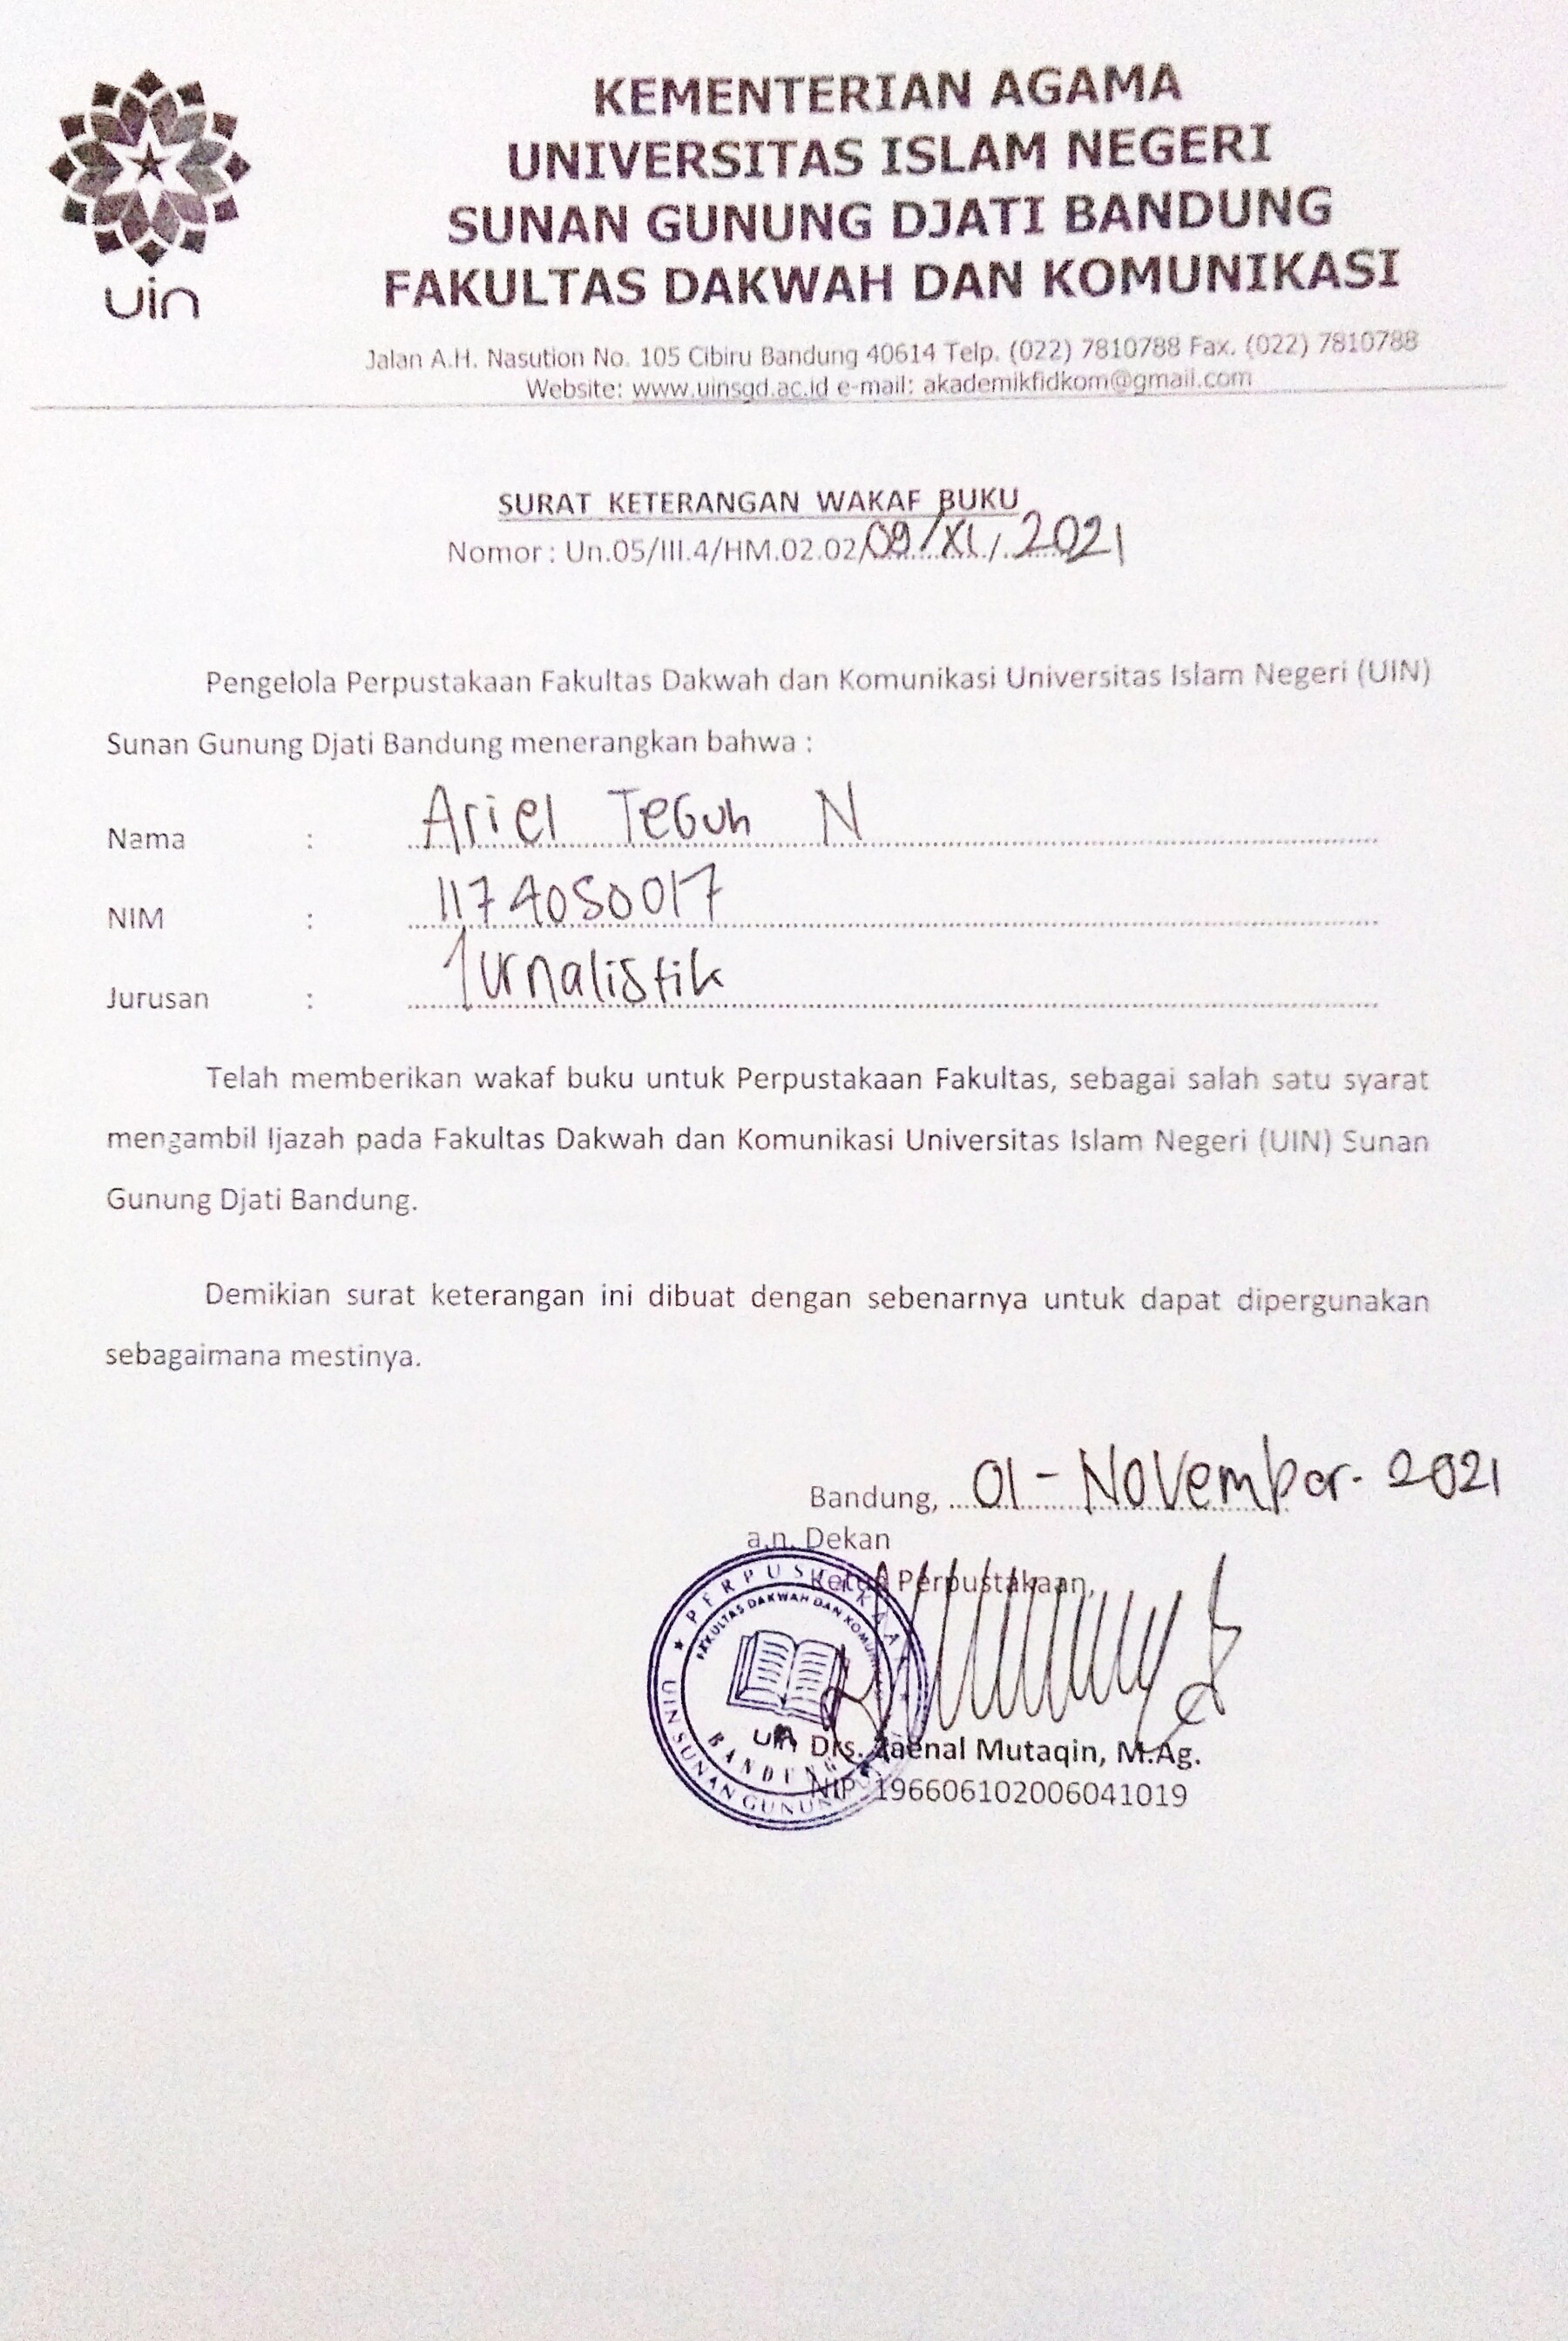 uin
KEMENTERIAN AGAMA
UNIVERSITAS ISLAM NEGERI
SUNAN GUNUNG DJATI BANDUNG
FAKULTAS DAKWAH DAN KOMUNIKASI
Jalan A.H. Nasution No. 105 Cibiru Bandung 40614 Telp. (022) 7810788 Fax. (022) 7810788
Website: www.uinsgd.ac.id e-mail: akademikfidkom@gmail.com
SURAT KETERANGAN WAKAF BUKU
Nomor : Un.05/III.4/HM.02.02/09/XI/2021
Pengelola Perpustakaan Fakultas Dakwah dan Komunikasi Universitas Islam Negeri (UIN)
Sunan Gunung Djati Bandung menerangkan bahwa :
Nama : Ariel Teguh N
NIM : 1174050017
Jurusan : Jurnalistik
Telah memberikan wakaf buku untuk Perpustakaan Fakultas, sebagai salah satu syarat
mengambil Ijazah pada Fakultas Dakwah dan Komunikasi Universitas Islam Negeri (UIN) Sunan
Gunung Djati Bandung.
Demikian surat keterangan ini dibuat dengan sebenarnya untuk dapat dipergunakan
sebagaimana mestinya.
Bandung, 01 - November - 2021
a.n. Dekan
Ketua Perpustakaan,
PERPUSTAKAAN
FAKULTAS DAKWAH DAN
uin
BANDUNG
UIN SUNAN GUNUNG
Drs. Zaenal Mutaqin, M.Ag.
NIP. 196606102006041019